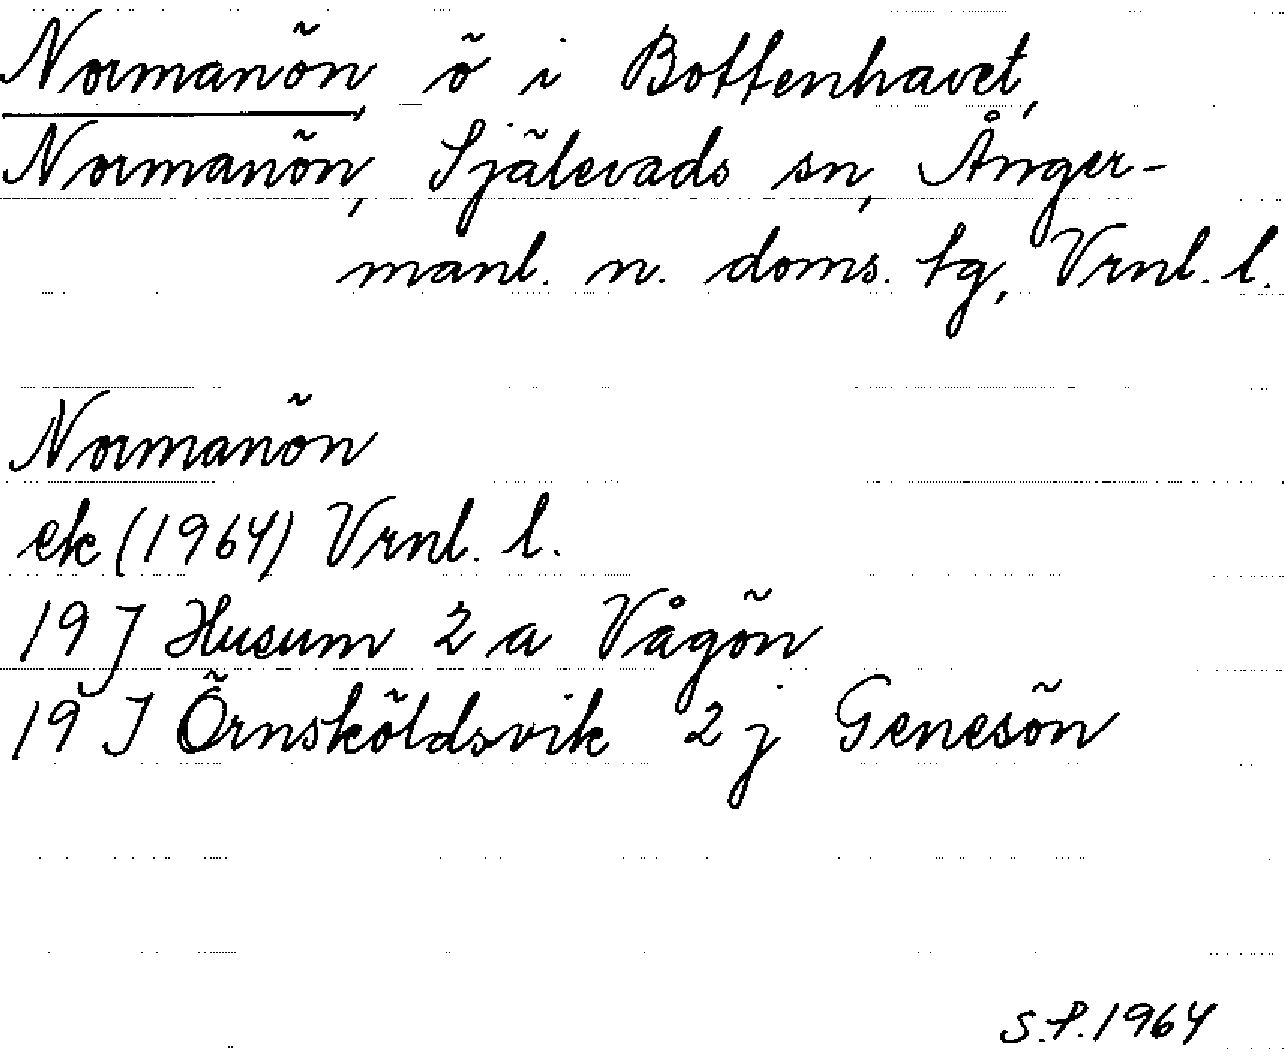 Normanön, ö i Bottenhavet,
Normanön, Själevads sn, Ånger-
manl. n. doms. tg, Vrnl. l.
Normanön
ek (1964) Vrnl. l.
19 J Husum 2 a Vågön
19 J Örnsköldsvik 2 j Genesön
S.P. 1964